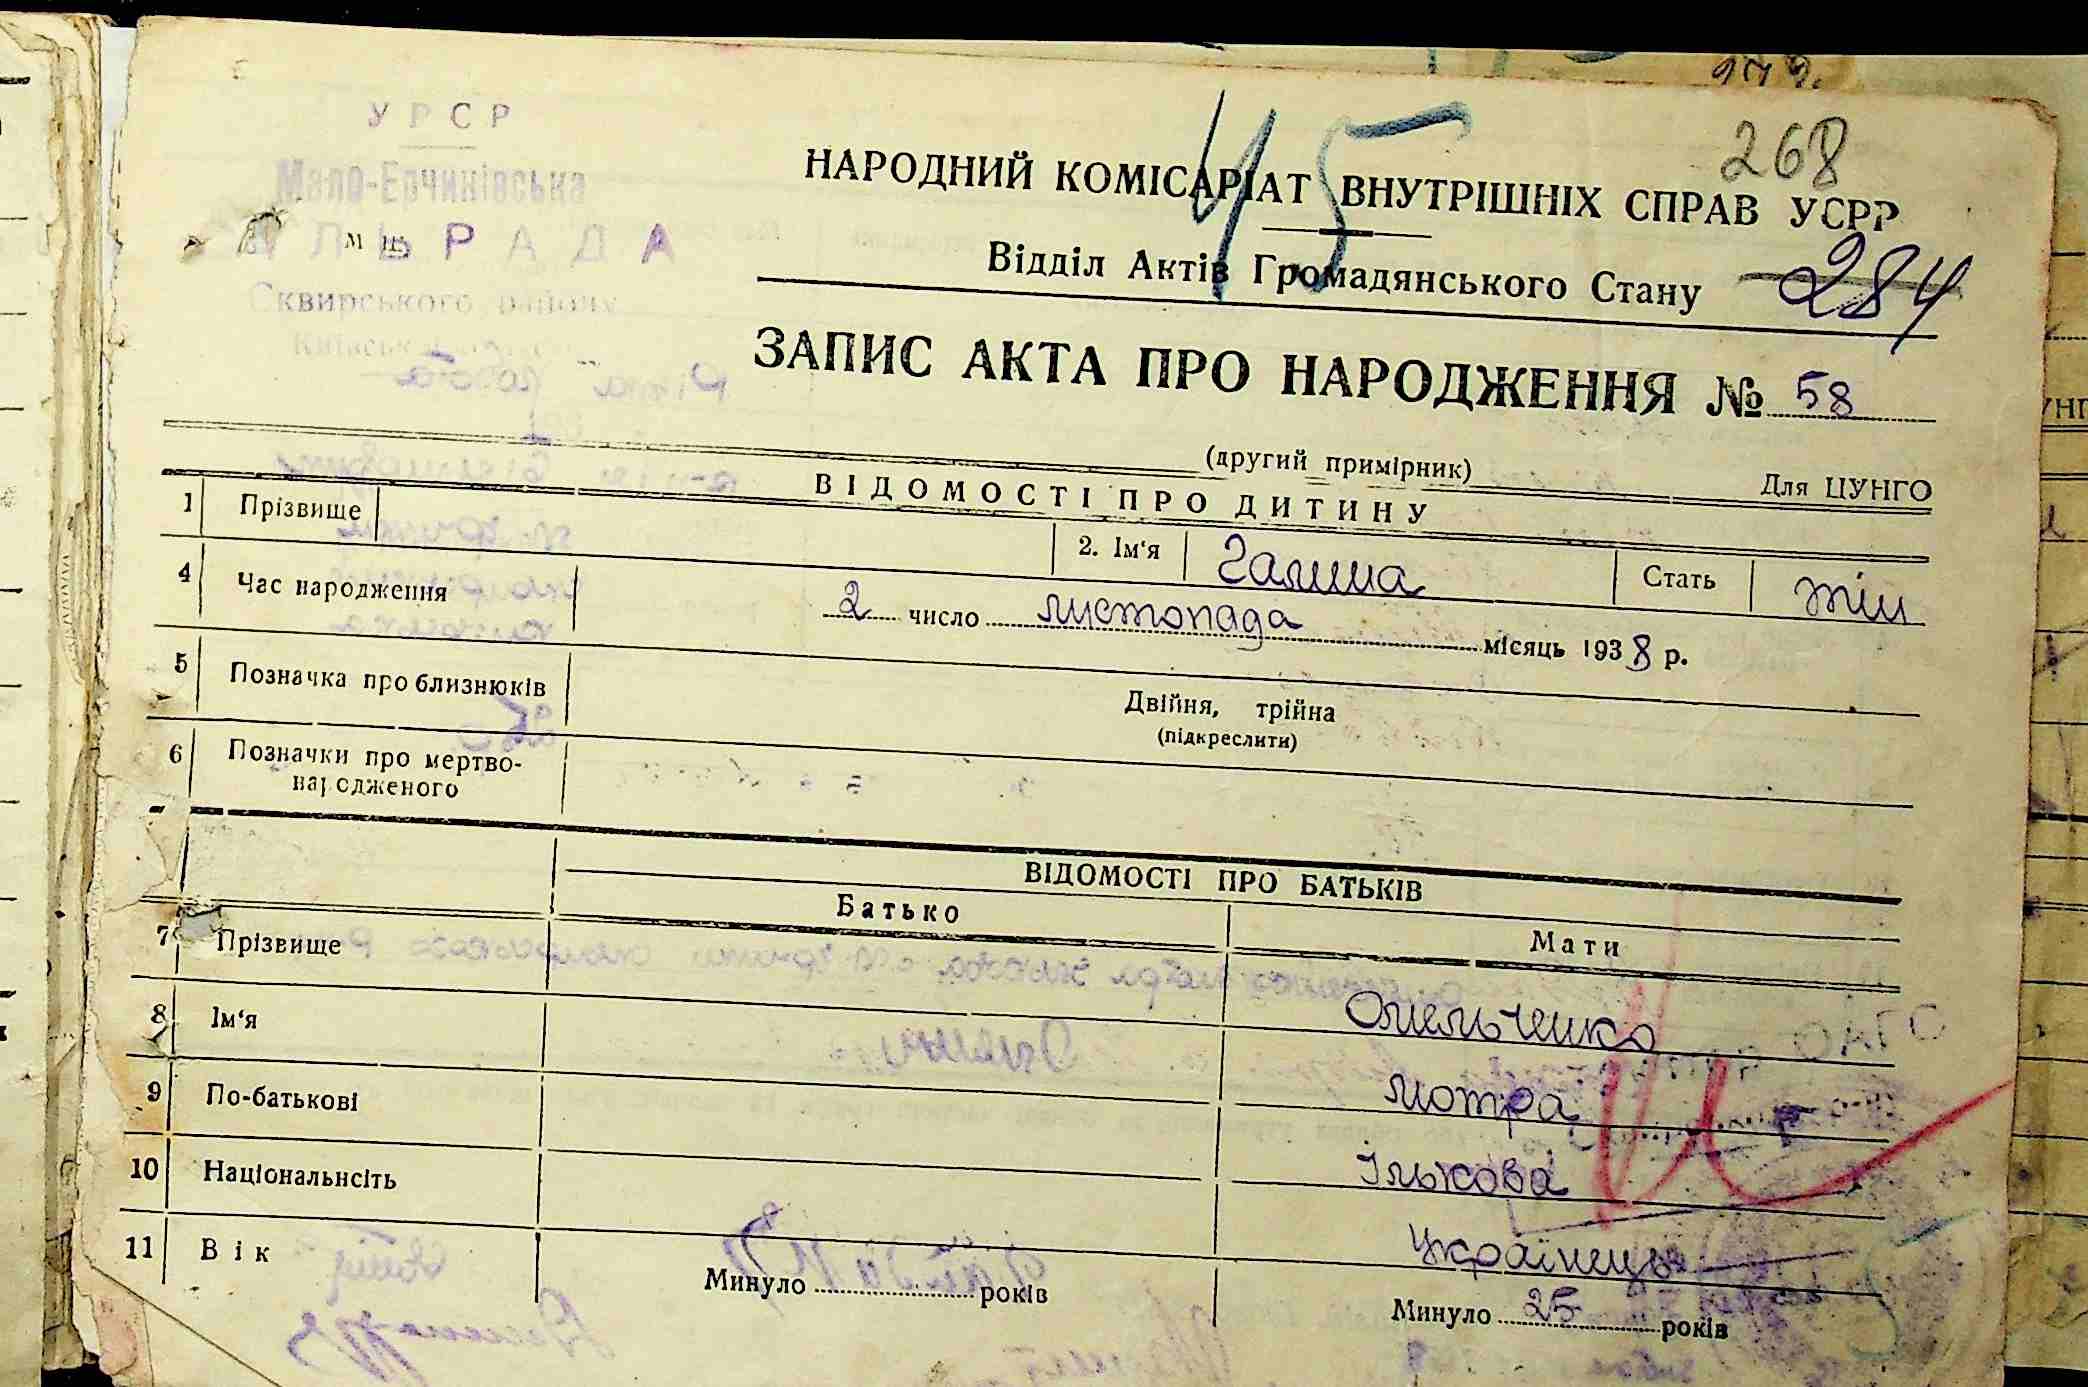 268
УРСР
Мало-Єрчиківська
ЛЬРАДА
Сквирського району
45
НАРОДНИЙ КОМІСАРІАТ ВНУТРІШНІХ СПРАВ УСРР
Відділ Актів Громадянського Стану 284
ЗАПИС АКТА ПРО НАРОДЖЕННЯ № 58
(другий примірник) Для ЦУНГО
ВІДОМОСТІ ПРО ДИТИНУ
1 Прізвище 2. Ім'я Галина Стать жін
4 Час народження 2 число листопада місяць 1938 р.
5 Позначка про близнюків Двійня, трійна
(підкреслити)
6 Позначки про мертво-
народженого
ВІДОМОСТІ ПРО БАТЬКІВ
Батько Мати
7 Прізвище Омельченко
8 Ім'я мотра
9 По-батькові Ількова
10 Національнсіть Українець
11 Вік Минуло років Минуло 25 років